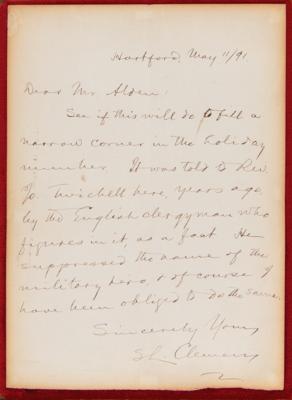 Hartford, May 11/91.
Dear Mr Alden:
See if this will do to fill a
narrow corner in the holiday
number. It was told to Rev.
Jo. Twichell here, years ago,
by the English clergyman who
figures in it, as a fact. He
suppressed the name of the
military hero, & of course I
have been obliged to do the same.
Sincerely Yours
S L. Clemens